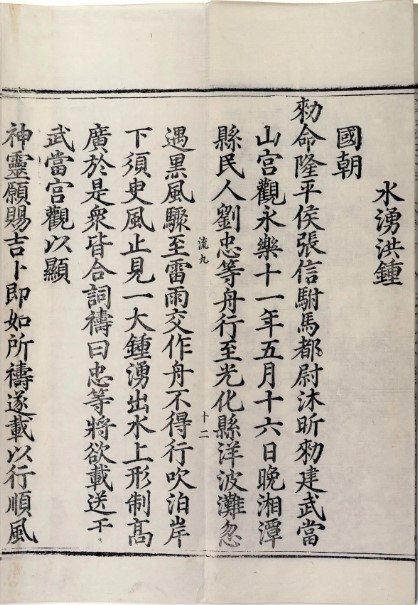 水湧洪鍾
國朝
勑命隆平侯張信駙馬都尉沐昕勑建武當
山宫觀永樂十一年五月十六日晚湘潭
縣民人劉忠等舟行至光化縣洋波灘忽
流九
十二
遇黒風驟至雷雨交作舟不得行吹泊岸
下須史風止見一大鍾湧出水上形制髙
廣於是衆皆合詞禱曰忠等將欲載送于
武當宫觀以顯
神靈願賜吉卜即如所禱遂載以行順風